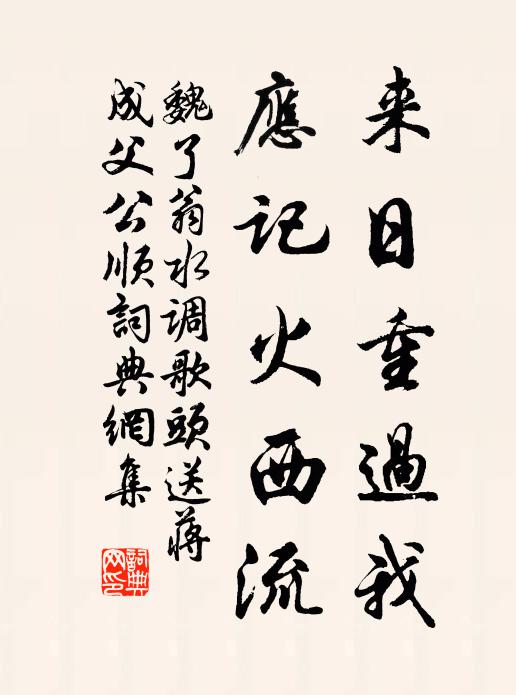 来日重過我
應記火西流
魏了翁水调歌頭送蔣
成父公順詞典網集
詞典
网印